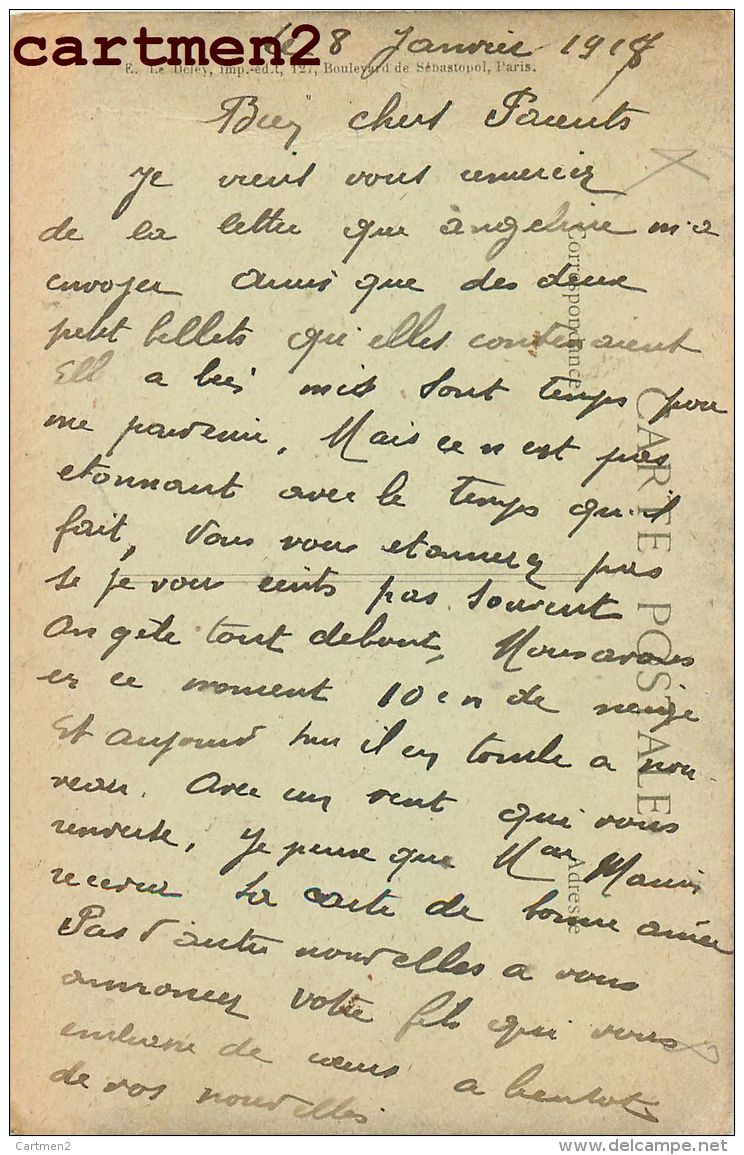 cartmen2
le 8 Janvier 1918
E. Le Deley, imp.-éd.t, 127, Boulevard de Sébastopol, Paris.
Bien chers Parents
Je vient vous remercier
de la lettre que angeline m'a
envoyer ainsi que des deux
petit billets qu'elles contenaient
Ell a bien mit sont temps pour
me parvenir, Mais ce n est pas
etonnant avec le temps qu'il
fait, Vous vous etonnerez pas
se je vous ecrits pas souvent
On gèle tout debout, Nous avons
en ce moment 10 cm de neige
Et aujourd hui il en tombe a nou
veau. Avec un vent qui vous
renverse, Je pense que Mme Mamis
recevra sa carte de bonne année
Pas d'autre nouvelles a vous
annoncer votre fils qui vous
embrasse de coeurs a bientot
de vos nouvelles.
Correspondance
CARTE POSTALE
Adresse
Cartmen2
www.delcampe.net